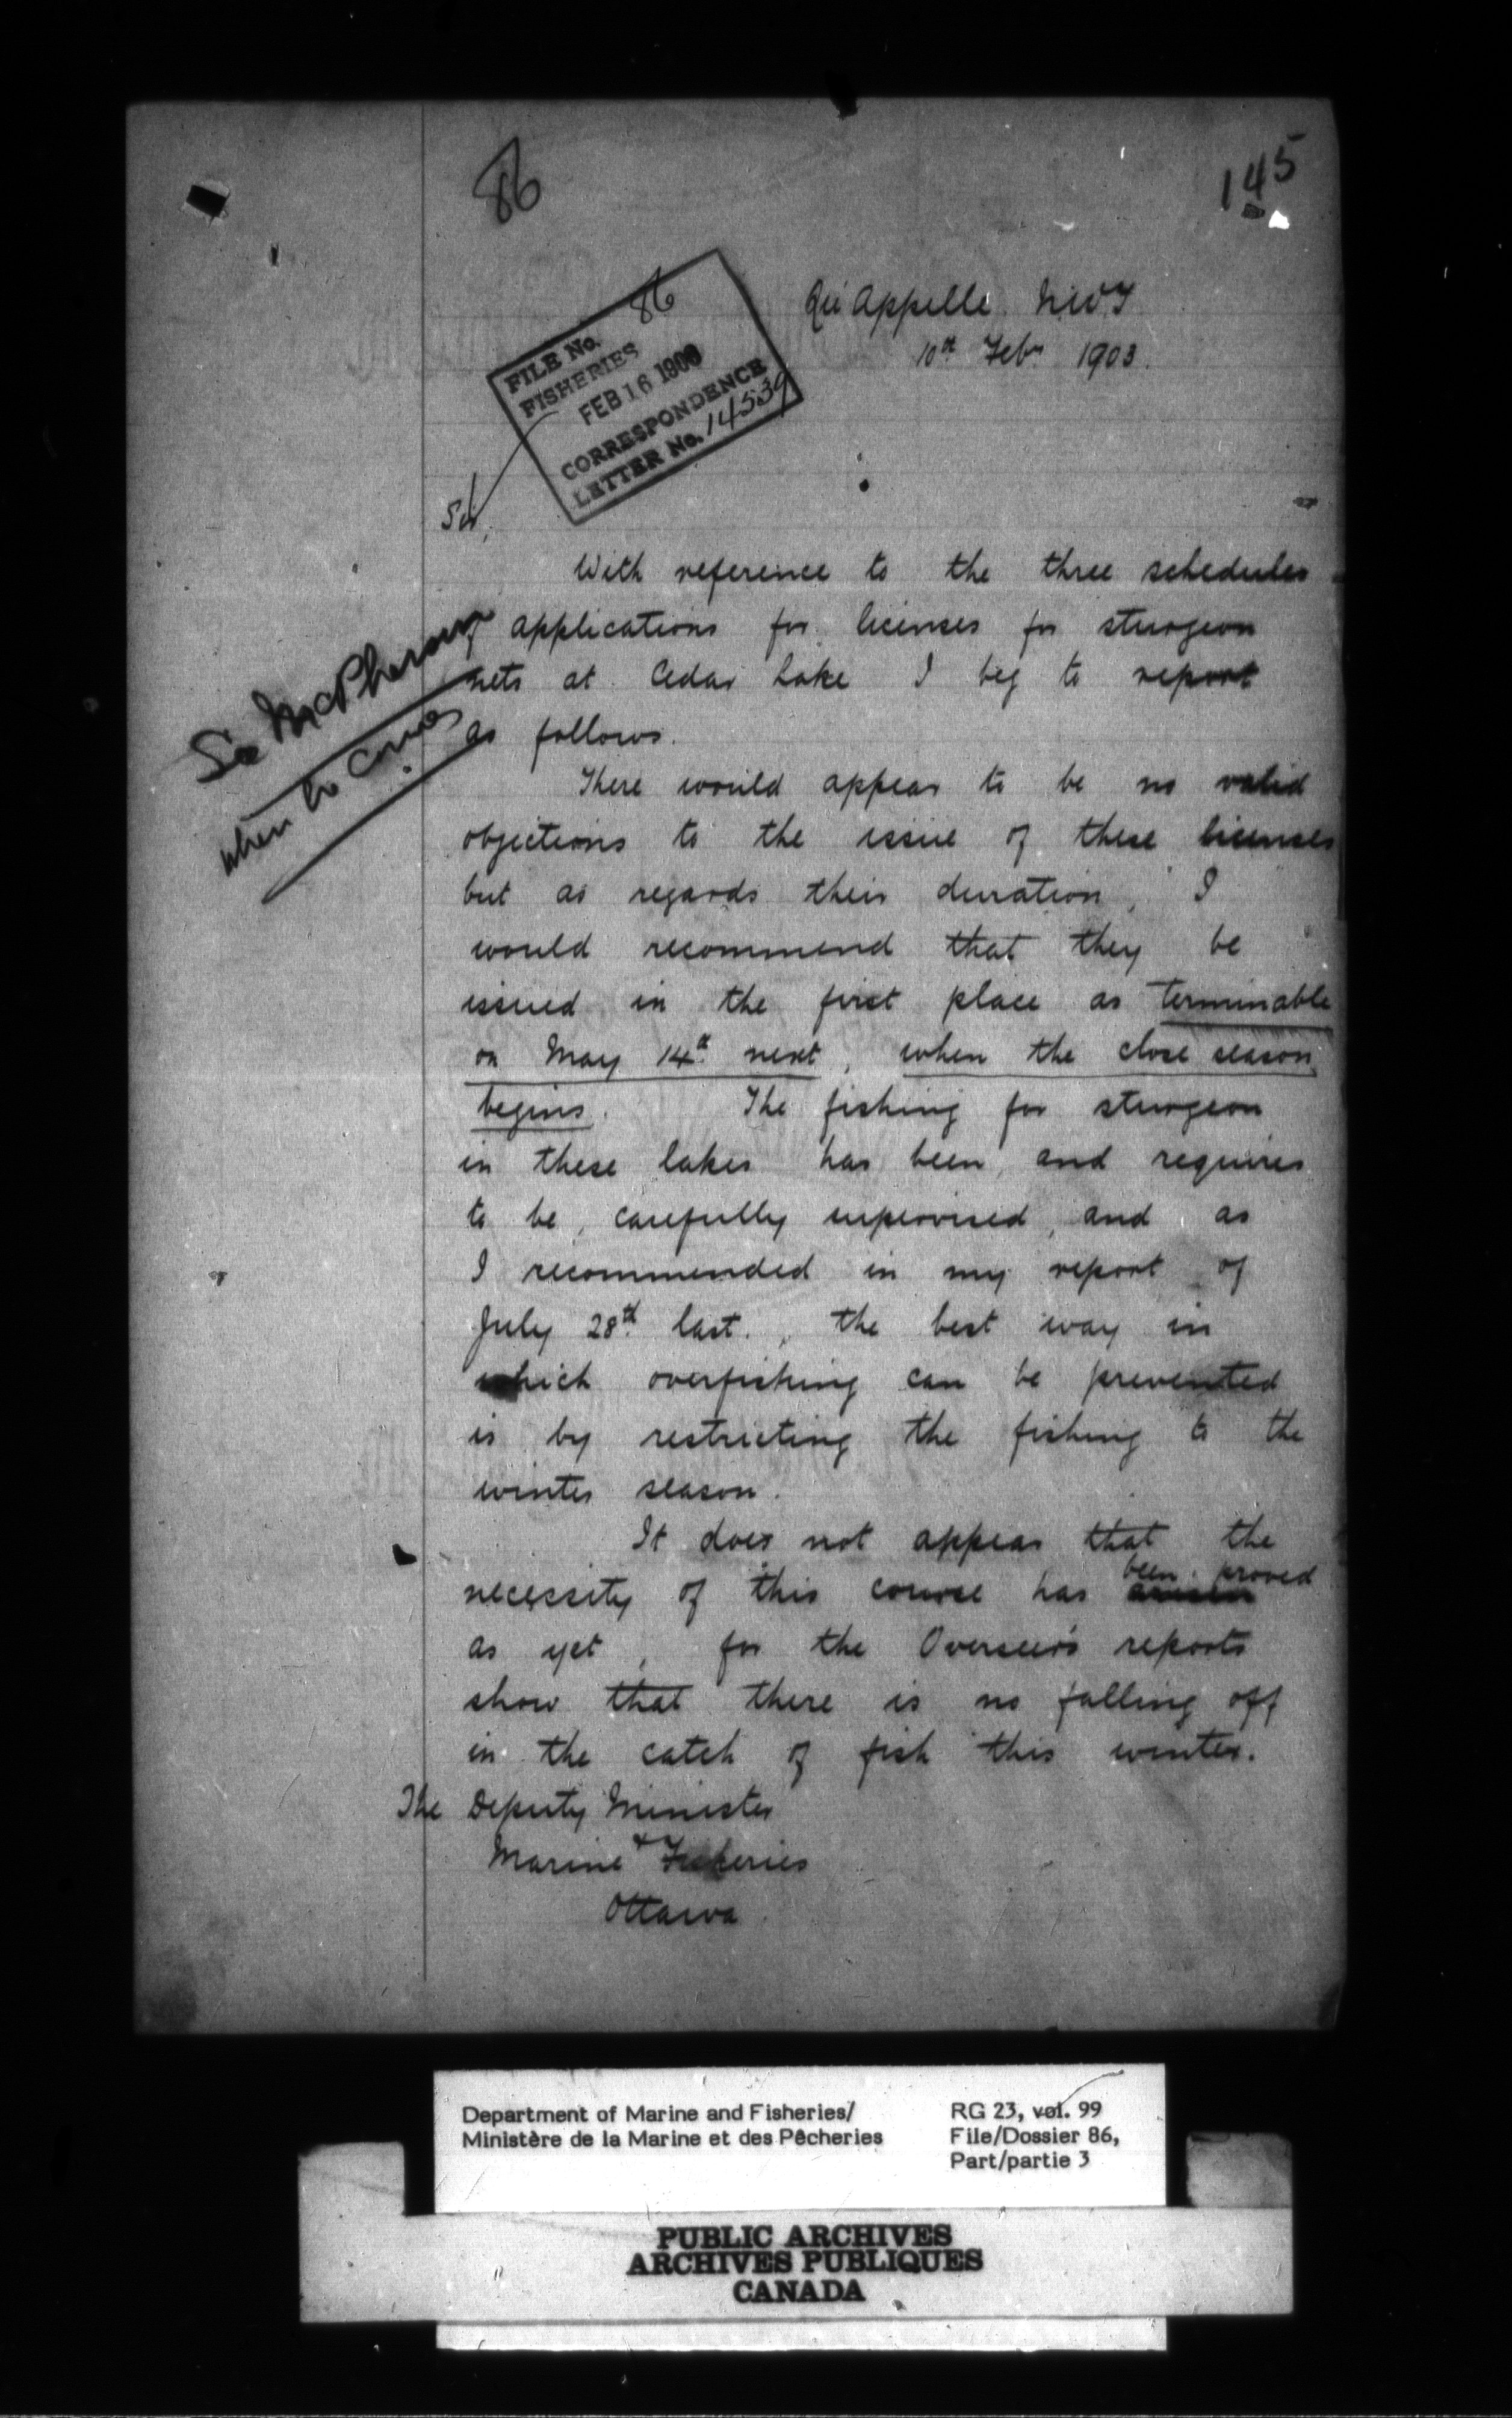 86
145
FILE No. 86
FISHERIES
FEB 16 1903
CORRESPONDENCE
LETTER No. 14539
Qu'Appelle. NWT
10th Feby 1903.
Sir,
With reference to the three schedules
of applications for licenses for sturgeon
nets at Cedar Lake I beg to report
as follows.
There would appear to be no valid
objections to the issue of these licenses
but as regards their duration, I
would recommend that they be
issued in the first place as terminable
on May 14th next, when the close season
begins. The fishing for sturgeon
in these lakes has been, and requires
to be, carefully supervised, and as
I recommended in my report of
July 28th last, the best way in
which overfishing can be prevented
is by restricting the fishing to the
winter season.
It does not appear that the
necessity of this course has been proved
as yet, for the Overseer's reports
show that there is no falling off
in the catch of fish this winter.
The Deputy Minister
Marine & Fisheries
Ottawa
McPherson
when he comes
Department of Marine and Fisheries/
Ministère de la Marine et des Pêcheries
RG 23, vol. 99
File/Dossier 86,
Part/partie 3
PUBLIC ARCHIVES
ARCHIVES PUBLIQUES
CANADA